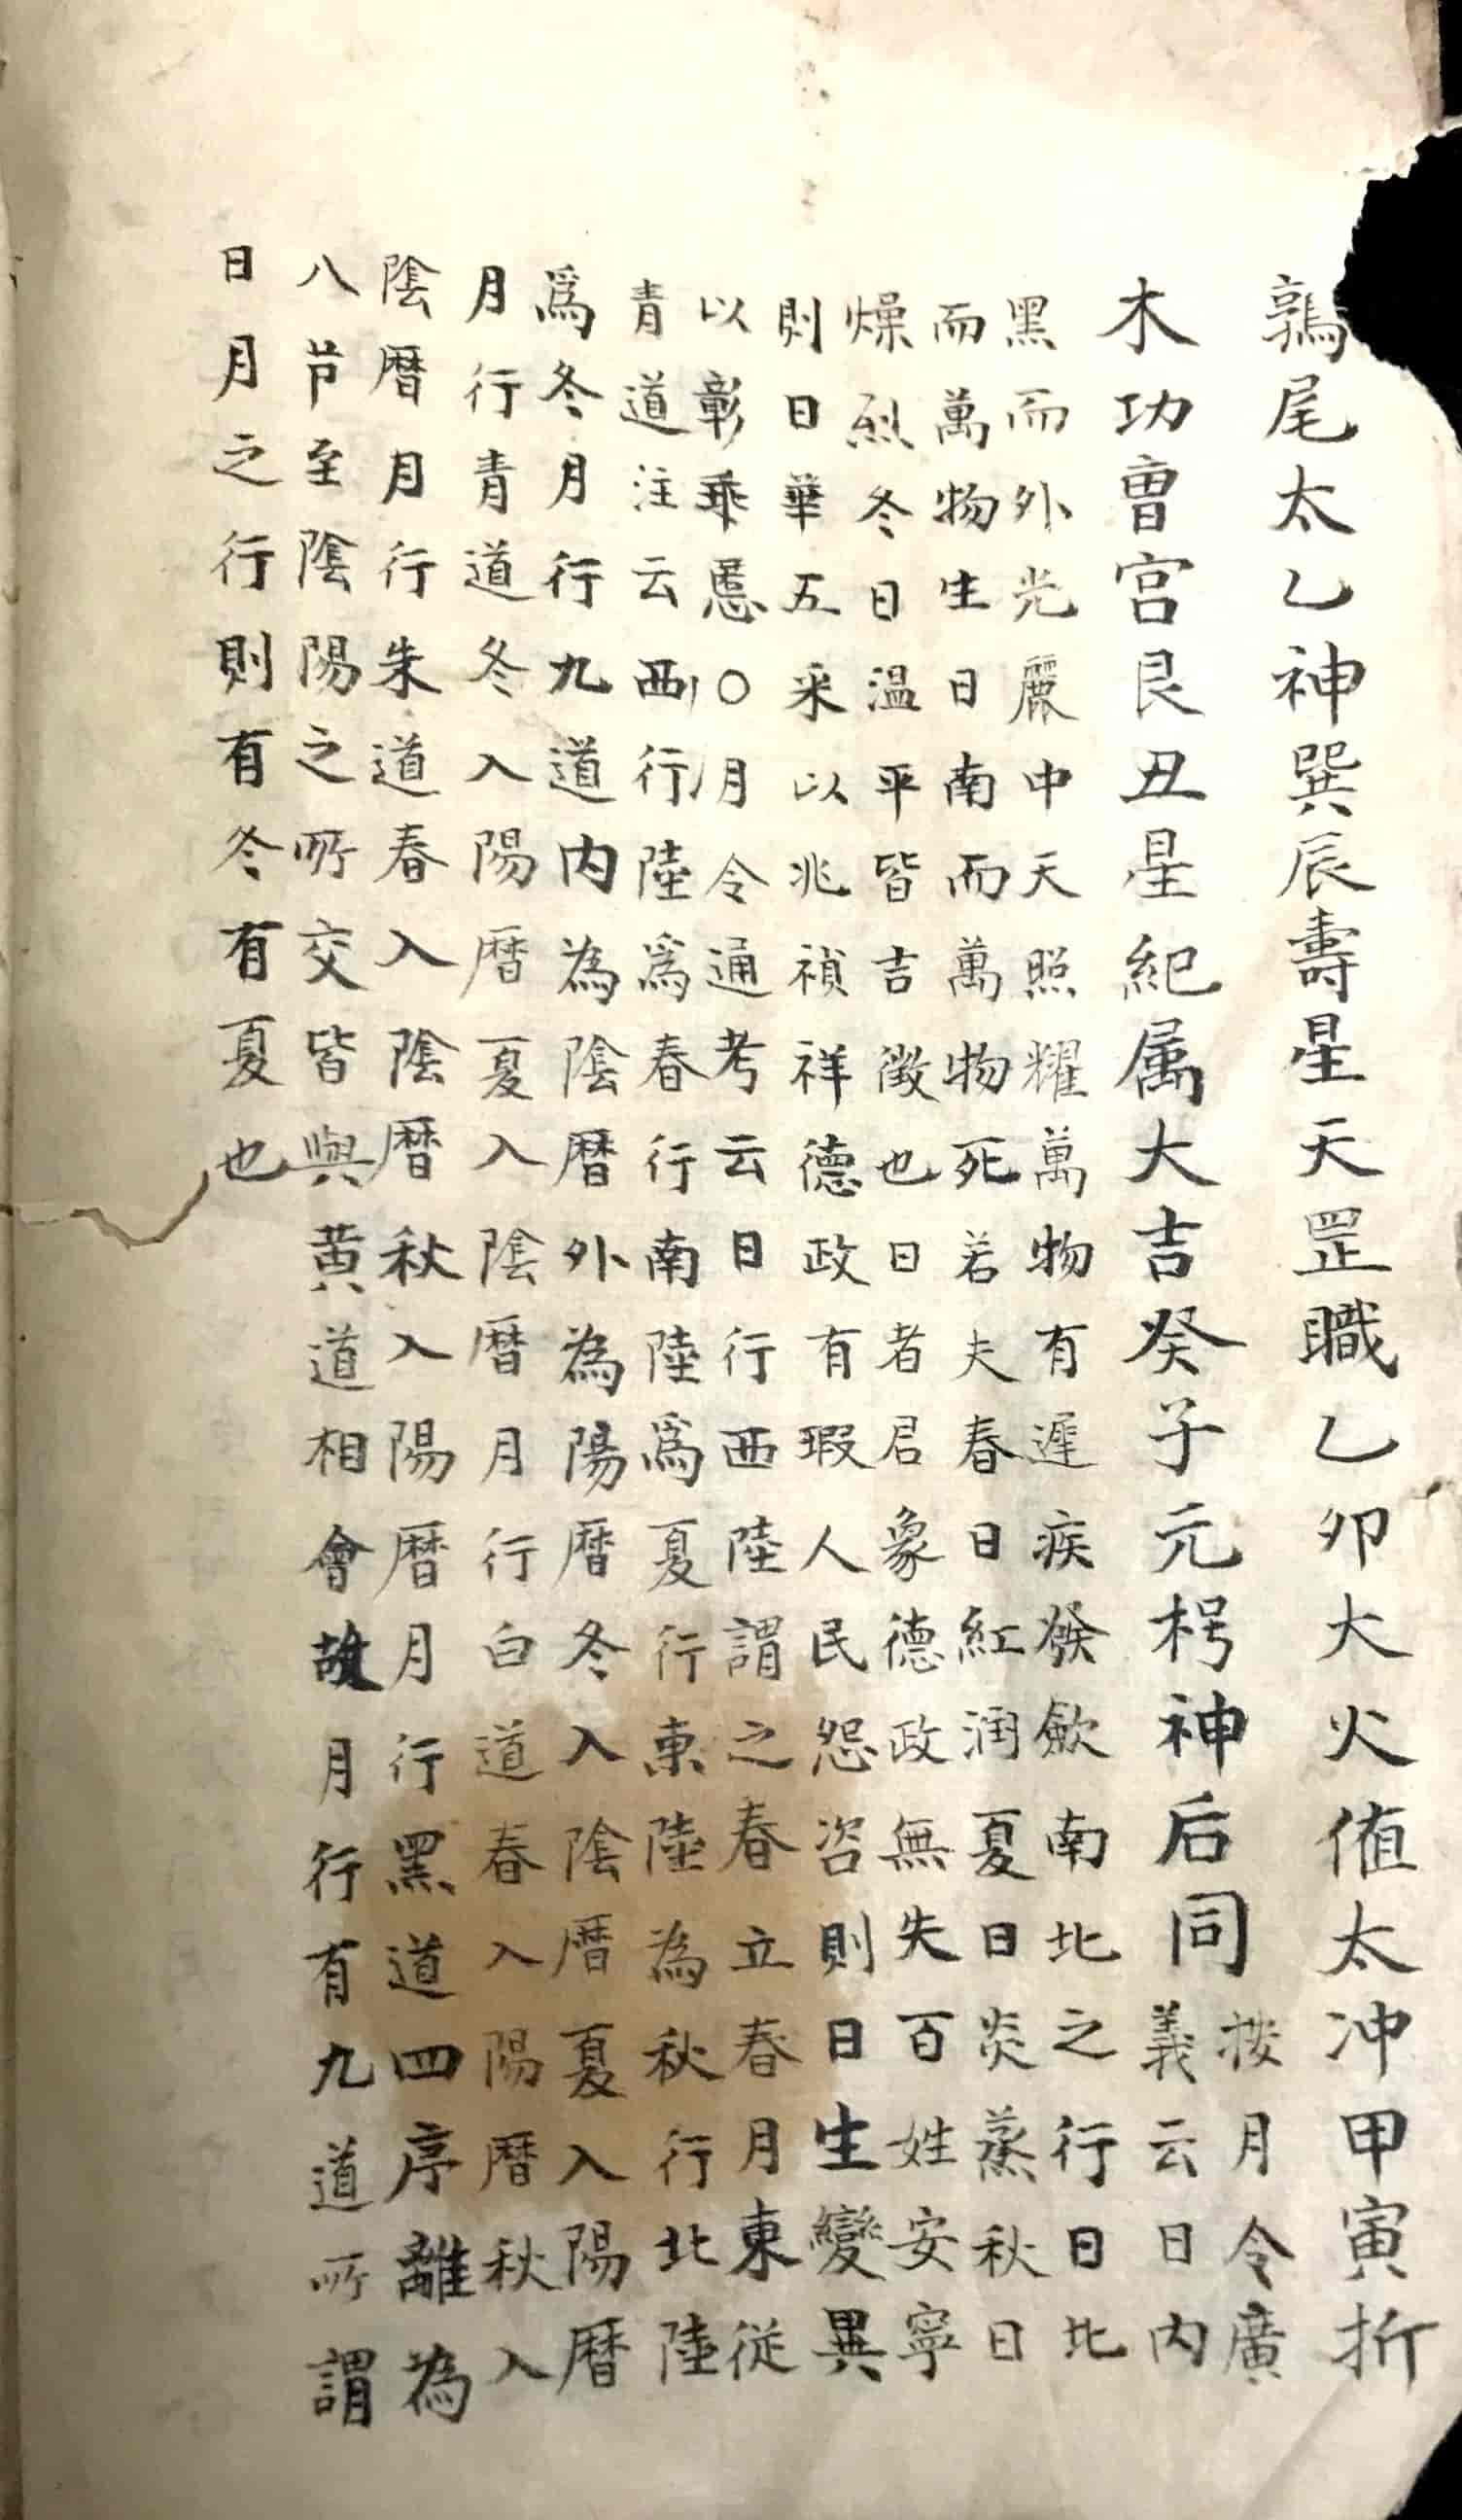 鶉尾太乙神巽辰壽星天罡職乙卯大火值太冲甲寅折
木功曺宫艮丑星紀属大吉癸子元枵神后同
按月令廣
義云日内
黑而外光麗中天照耀萬物有遲疾發歛南北之行日北
而萬物生日南而萬物死若夫春日紅润夏日炎蒸秋日
燥烈冬日温平皆吉徵也日者君象德政無失百姓安寧
則日華五采以兆禎祥德政有瑕人民怨咨則日生變異
以彰乖慝〇月令通考云日行西陸謂之春立春月東従
青道注云西行陸爲春行南陸爲夏行東陸為秋行北陸
爲冬月行九道内為陰暦外為陽暦冬入陰暦夏入陽暦
月行青道冬入陽暦夏入陰暦月行白道春入陽暦秋入
陰暦月行朱道春入陰暦秋入陽暦月行黑道四序離為
八节至陰陽之所交皆與黄道相會故月行有九道所謂
日月之行則有冬有夏也